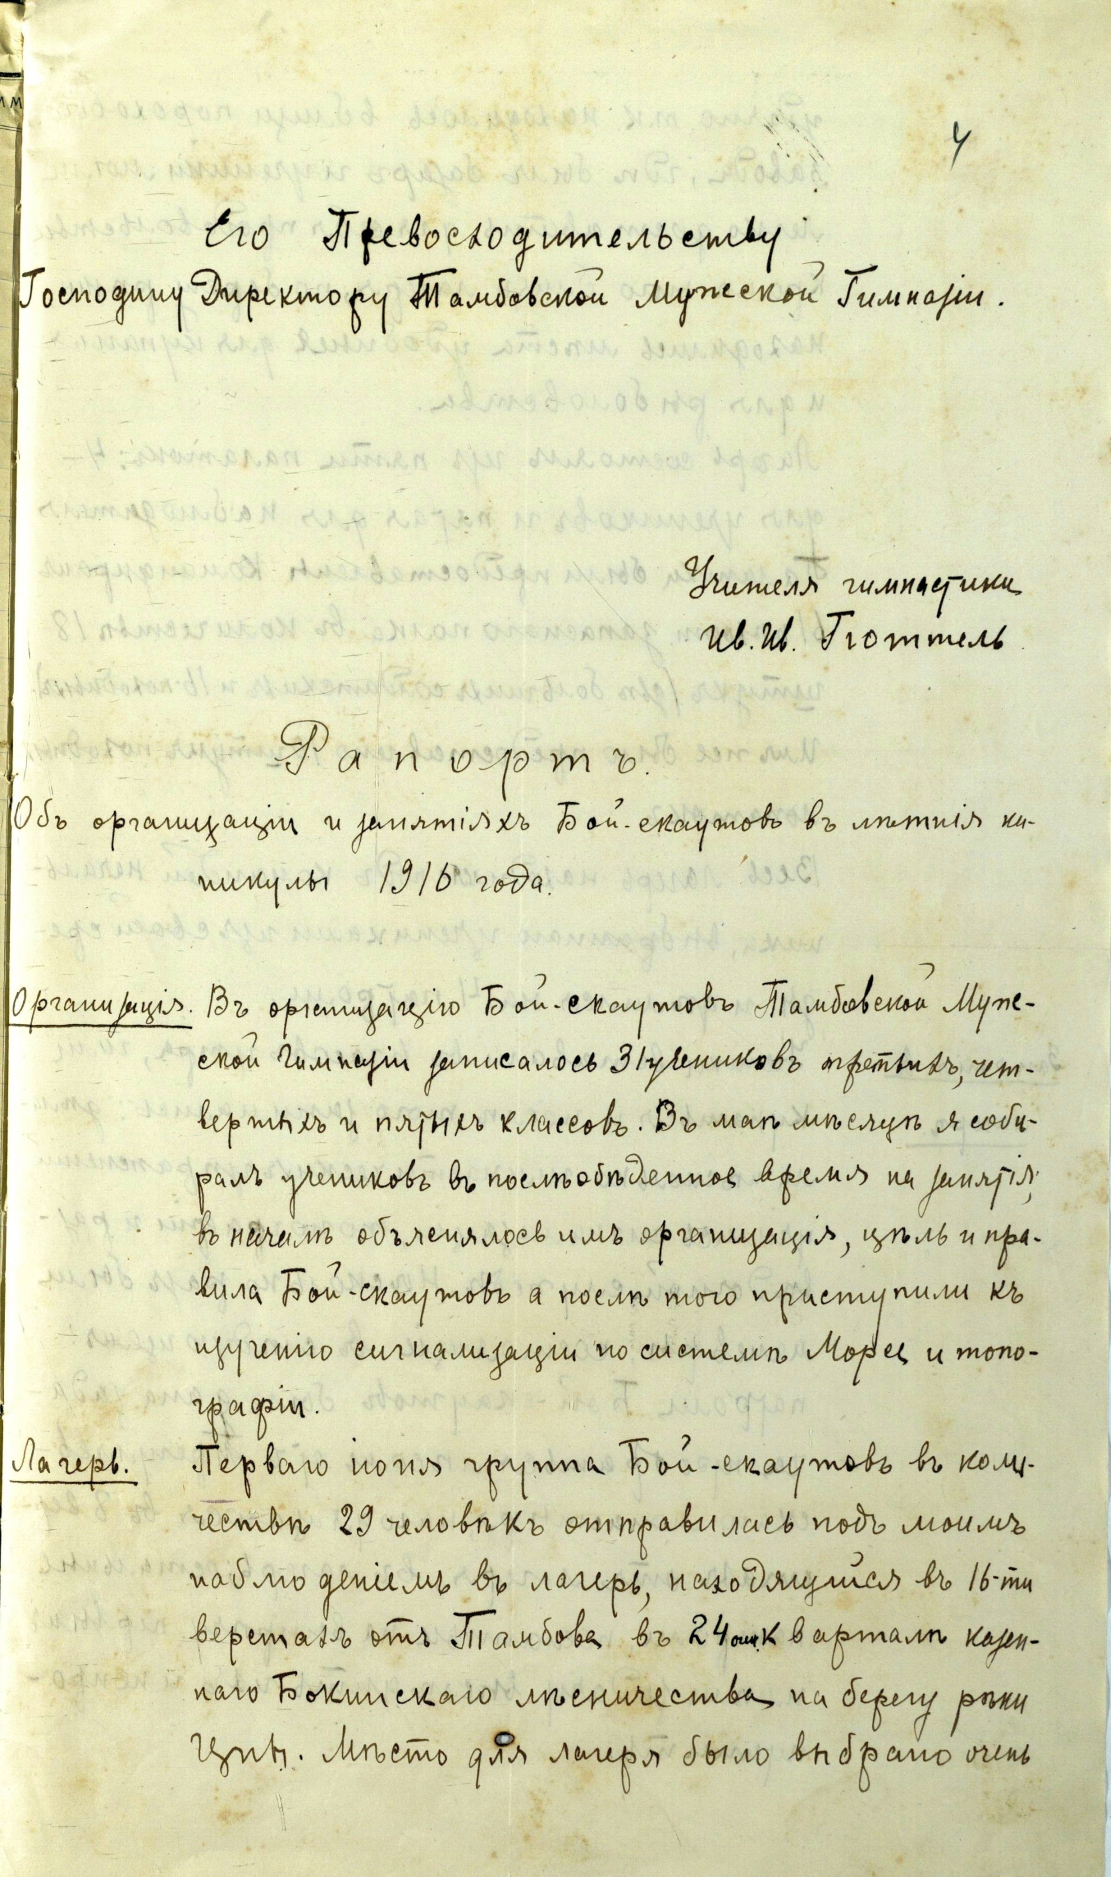 4
Его Превосходительству
Господину Директору Тамбовской Мужской Гимназіи.
Учителя гимнастики
Ив. Ив. Гюттель
Рапортъ.
Объ организаціи и занятіяхъ Бой-скаутовъ въ лѣтнія ка-
никулы 1916 года.
Организація. Въ организацію Бой-скаутовъ Тамбовской Муж-
ской Гимназіи записалось 31 учениковъ третьихъ, чет-
вертыхъ и пятыхъ классовъ. Въ маѣ мѣсяцѣ я соби-
ралъ учениковъ въ послѣобѣденное время на занятія,
въ началѣ объяснялось имъ организація, цѣль и пра-
вила Бой-скаутовъ а послѣ того приступили къ
изученію сигнализаціи по системѣ Морзе и топо-
графіи.
Лагерь. Перваго іюня группа Бой-скаутовъ въ коли-
чествѣ 29 человѣкъ отправилась подъ моимъ
наблюденіемъ въ лагерь, находящійся въ 16-ти
верстахъ отъ Тамбова въ 24 омъ Кварталѣ казен-
наго Бокинскаго лѣсничества на берегу рѣки
Цны. Мѣсто для лагеря было выбрано очень